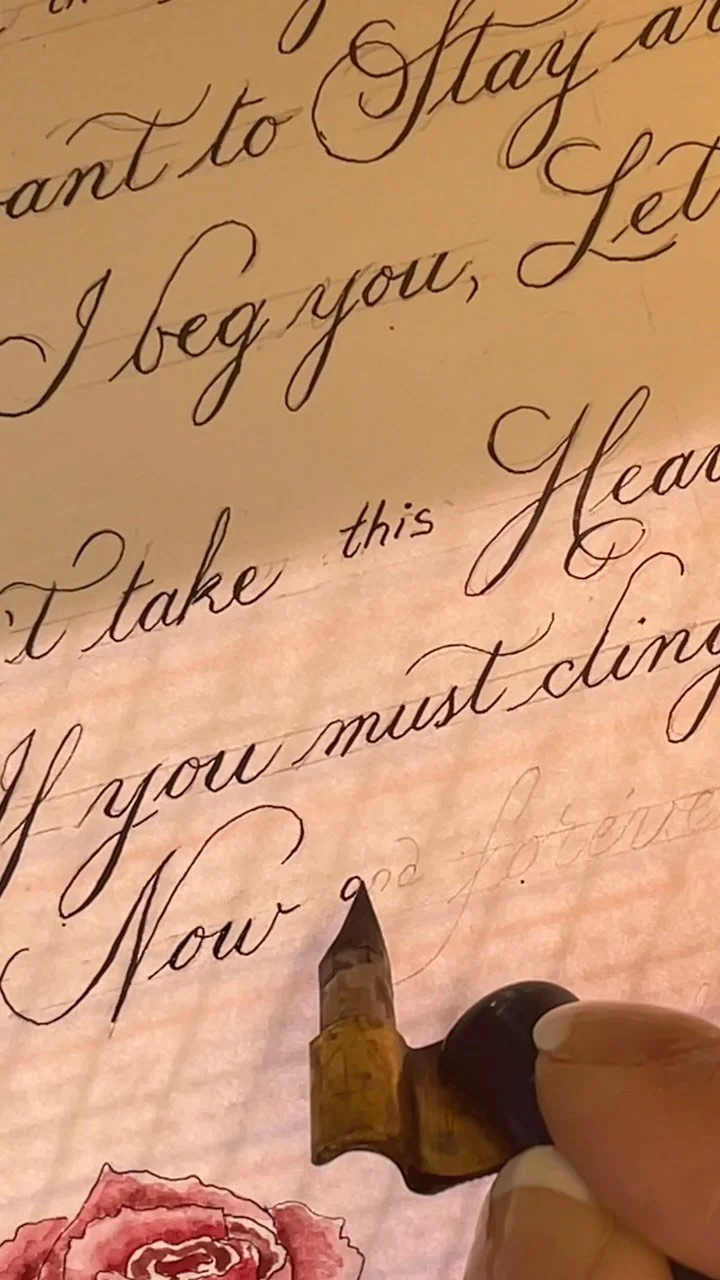 ant to Stay ar
I beg you, Let
't take this Hear
If you must cling
Now and foreve